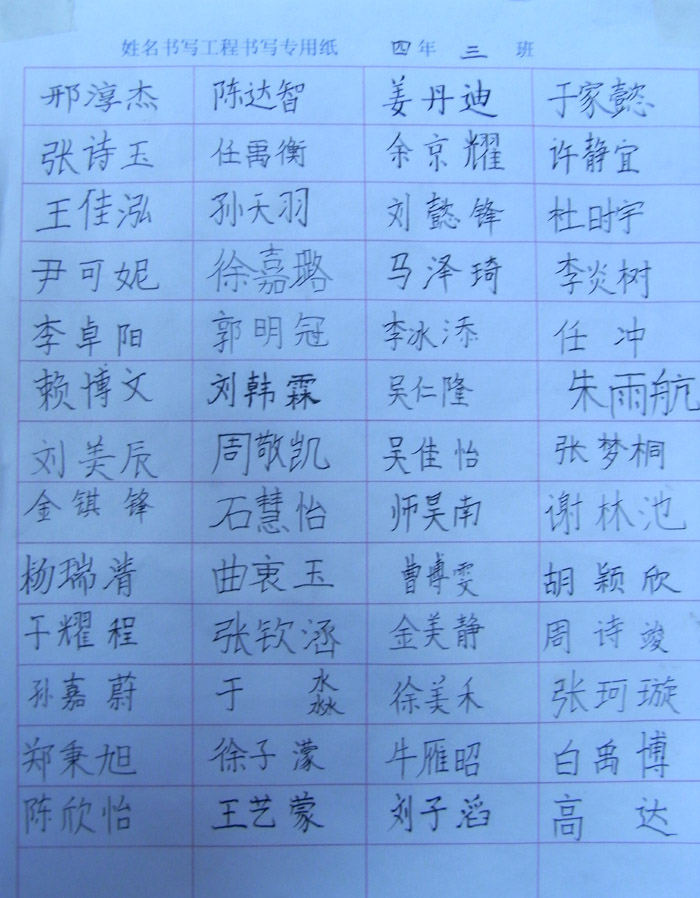 姓名书写工程书写专用纸 四年 三 班
邢淳杰 陈达智 姜丹迪 于家懿
张诗玉 任禹衡 余京耀 许静宜
王佳泓 孙天羽 刘懿锋 杜时宇
尹可妮 徐嘉璐 马泽琦 李炎树
李卓阳 郭明冠 李冰添 任冲
赖博文 刘韩霖 吴仁隆 朱雨航
刘美辰 周敬凯 吴佳怡 张梦桐
金锘锋 石慧怡 师昊南 谢林池
杨瑞清 曲衷玉 曹博雯 胡颖欣
于耀程 张钦涵 金美静 周诗竣
孙嘉蔚 于淼 徐美禾 张珂璇
郑秉旭 徐子濛 牛雁昭 白禹博
陈欣怡 王艺蒙 刘子滔 高达